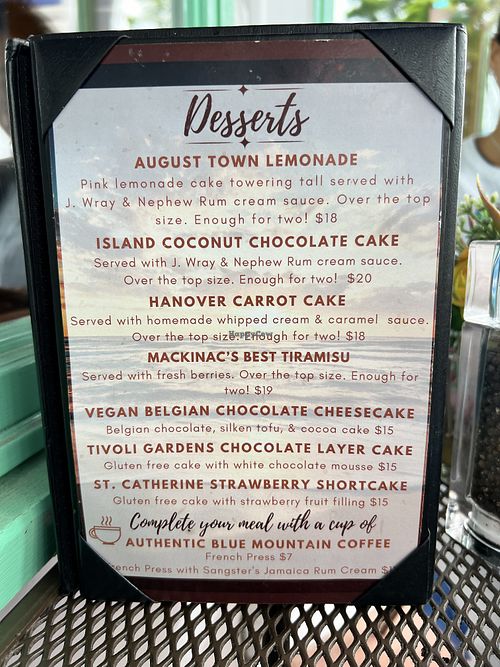 Desserts
AUGUST TOWN LEMONADE
Pink lemonade cake towering tall served with
J. Wray & Nephew Rum cream sauce. Over the top
size. Enough for two! $18
ISLAND COCONUT CHOCOLATE CAKE
Served with J. Wray & Nephew Rum cream sauce.
Over the top size. Enough for two! $20
HANOVER CARROT CAKE
Served with homemade whipped cream & caramel sauce.
Over the top size. Enough for two! $18
HappyCow
MACKINAC'S BEST TIRAMISU
Served with fresh berries. Over the top size. Enough for
two! $19
VEGAN BELGIAN CHOCOLATE CHEESECAKE
Belgian chocolate, silken tofu, & cocoa cake $15
TIVOLI GARDENS CHOCOLATE LAYER CAKE
Gluten free cake with white chocolate mousse $15
ST. CATHERINE STRAWBERRY SHORTCAKE
Gluten free cake with strawberry fruit filling $15
Complete your meal with a cup of
AUTHENTIC BLUE MOUNTAIN COFFEE
French Press $7
Press with Sangster's Jamaica Rum Cream